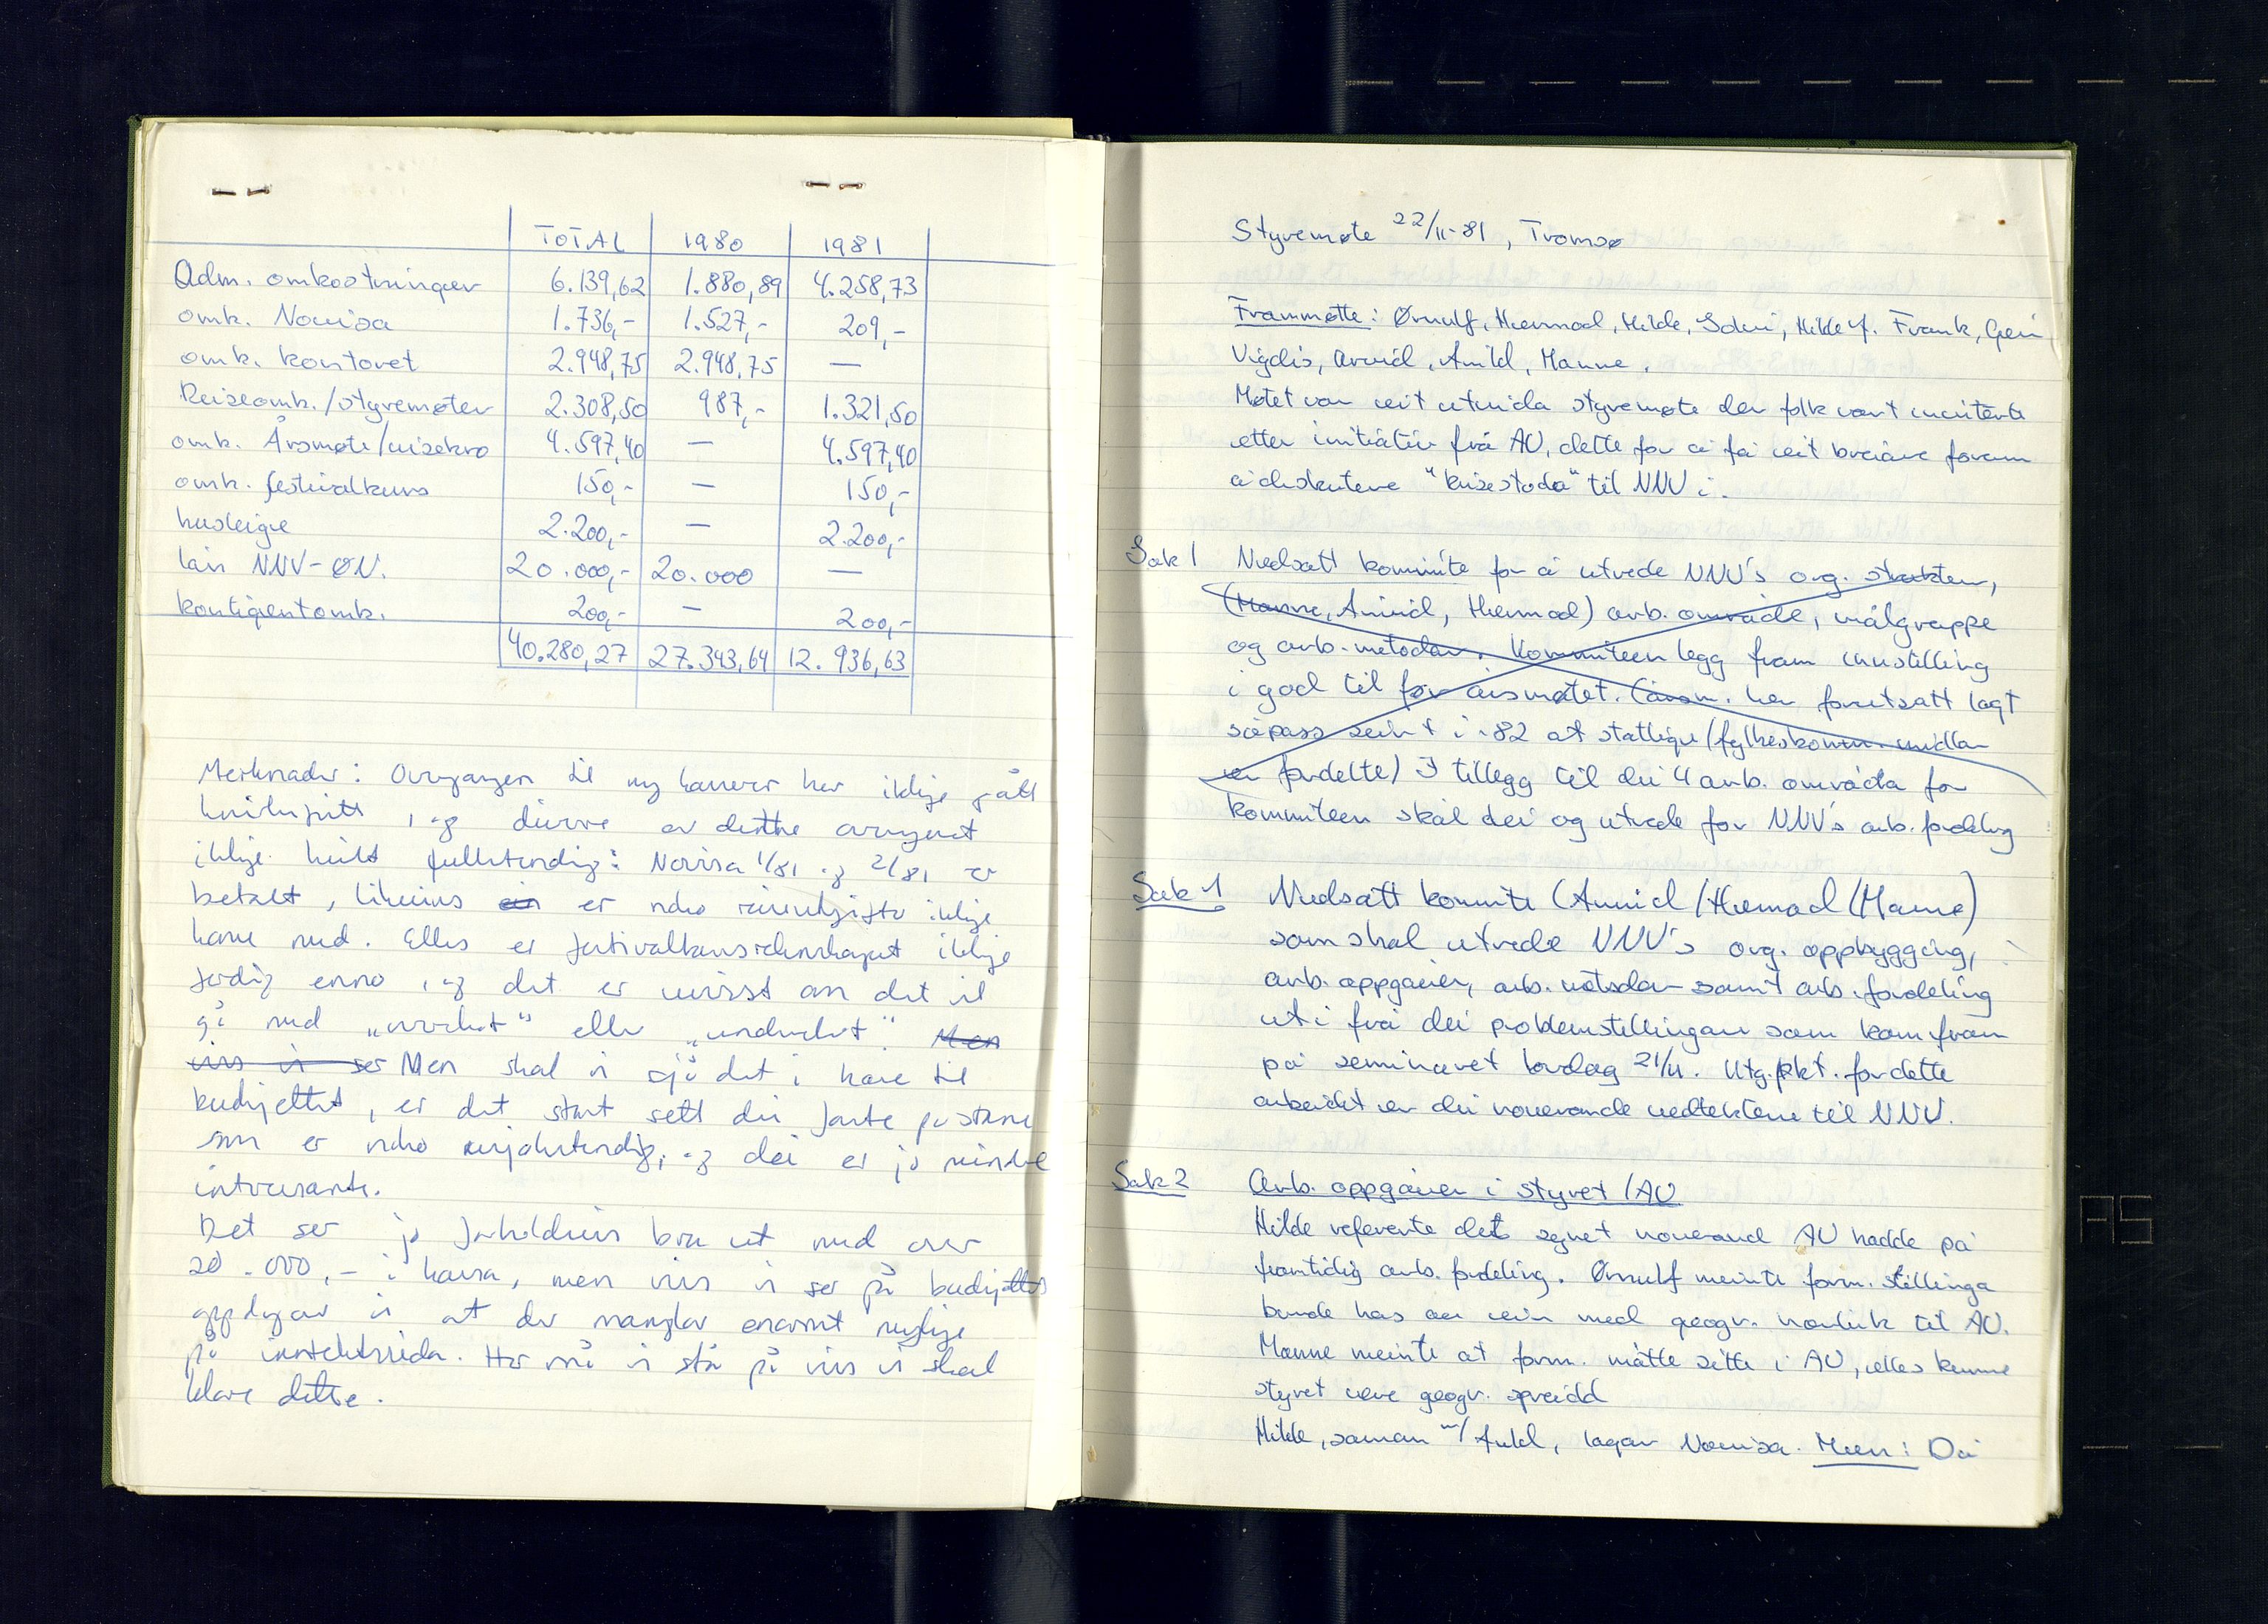 TOTAL 1980 1981
Adm. omkostninger 6.139,62 1.880,89 4.258,73
omk. Novisa 1.736,- 1.527,- 209,-
omk. kontoret 2.948,75 2.948,75 —
Reiseomk./styremøter 2.308,50 987,- 1.321,50
omk. Årsmøte/visekro 4.597,40 — 4.597,40
omk. festivalkurs 150,- — 150,-
husleige 2.200,- — 2.200,-
lån NNV-ØN. 20.000,- 20.000 —
kontigentomk. 200,- — 200,-
40.280,27 27.343,64 12.936,63
Merknader: Overgangen til ny kasserer har ikkje gått
knirkefritt, og difor er dette oversynet
ikkje heilt fullstendig: Novisa 1/81 og 2/81 er
betalt, likeins er noko reiseutgifter ikkje
kome med. Elles er festivalkursrekneskapet ikkje
ferdig enno, og det er uvisst om det vil
gå med "overskot" eller "underskot". Men
viss vi ser Men skal vi sjå det i høve til
budsjettet, er det stort sett dei faste postane
som er noko ufullstendig, og dei er jo mindre
interessante.
Det ser jo forholdsvis bra ut med over
20.000,- i kassa, men viss vi ser på budsjettet
oppdagar vi at der manglar enormt mykje
på inntektssida. Her må vi stå på viss vi skal
klare dette.
Styremøte 22/11-81, Tromsø
Frammøtte: Ørnulf, Hermod, Hilde, Solvi, Hilde f. Frank, Geir
Vigdis, Arvid, Arnild, Manne.
Møtet var eit utvida styremøte der folk vart inviterte
etter initiativ frå AU, dette for å få eit breiare forum
å diskutere "krisestoda" til NNV i.
Sak 1 Nedsatt kommite for å utrede NNV's org. struktur,
(Manne, Arnild, Hermod) arb. område, målgruppe
og arb. metodar. Kommiteen legg fram innstilling
i god til før årsmøtet. (årsm. her forutsatt lagt
såpass seint i -82 at statlige/fylkeskomm. midlar
er fordelte) I tillegg til dei 4 arb. områda for
kommiteen skal dei og utrede for NNV's arb. fordeling
Sak 1 Nedsatt kommite (Arnild/Hermod/Manne)
som skal utrede NNV's org. oppbygging,
arb. oppgåver, arb. metodar samt arb. fordeling
ut i frå dei problemstillingar som kom fram
på seminaret lørdag 21/11. Utg.pkt. for dette
arbeidet er dei noverande vedtektene til NNV.
Sak 2 Arb. oppgåver i styret/AU
Hilde referente det synet noverand AU hadde på
framtidig arb. fordeling. Ørnulf meinte form. stillinga
burde has av ein med geogr. nærleik til AU.
Manne meinte at form. måtte sitte i AU, elles kunne
styret vere geogr. spreidd
Hilde, saman m/ Arild, lagar Novisa. Men: Dei